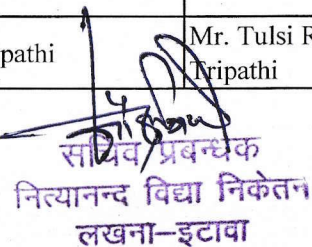 pathi
Mr. Tulsi R
Tripathi
सचिव प्रबन्धक
नित्यानन्द विद्या निकेतन
लखना-इटावा